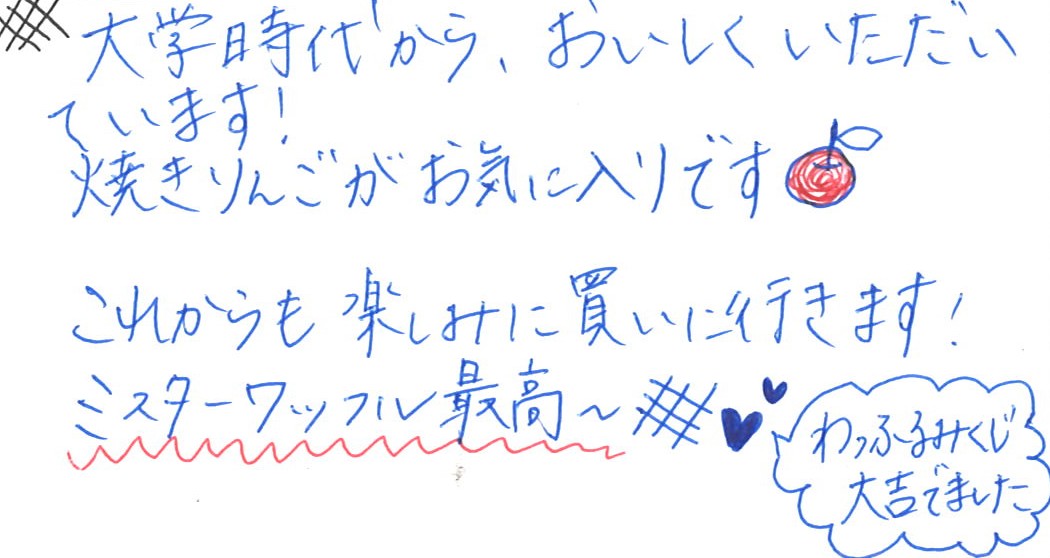 大学時代から、おいしくいただい
ています!
焼きりんごがお気に入りです
これからも楽しみに買いに行きます!
ミスターワッフル最高~
わっふるみくじ
大吉でました